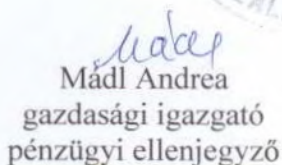 Mádl Andrea
gazdasági igazgató
pénzügyi ellenjegyző